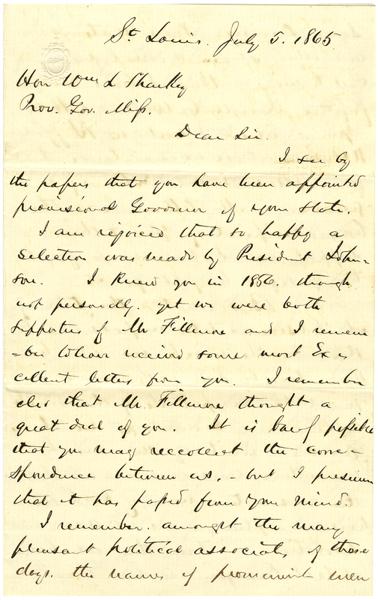 St Louis. July 5. 1865
Hon Wm L Sharkey
Prov. Gov. Miss.
Dear Sir.
I see by
the papers that you have been appointed
provisional Governor of your State.
I am rejoiced that so happy a
selection was made by President John-
son. I knew you in 1856. though
not personally. yet we were both
supporters of Mr Fillmore and I remem
-ber to have received some most Ex
cellent letters from you. I remember
also that Mr Fillmore thought a
great deal of you. It is barely possible
that you may reccollect the corre-
spondence between us, - but I presume
that it has passed from your mind.
I remember. amongst the many
pleasant political associates of those
days. the names of prominent men